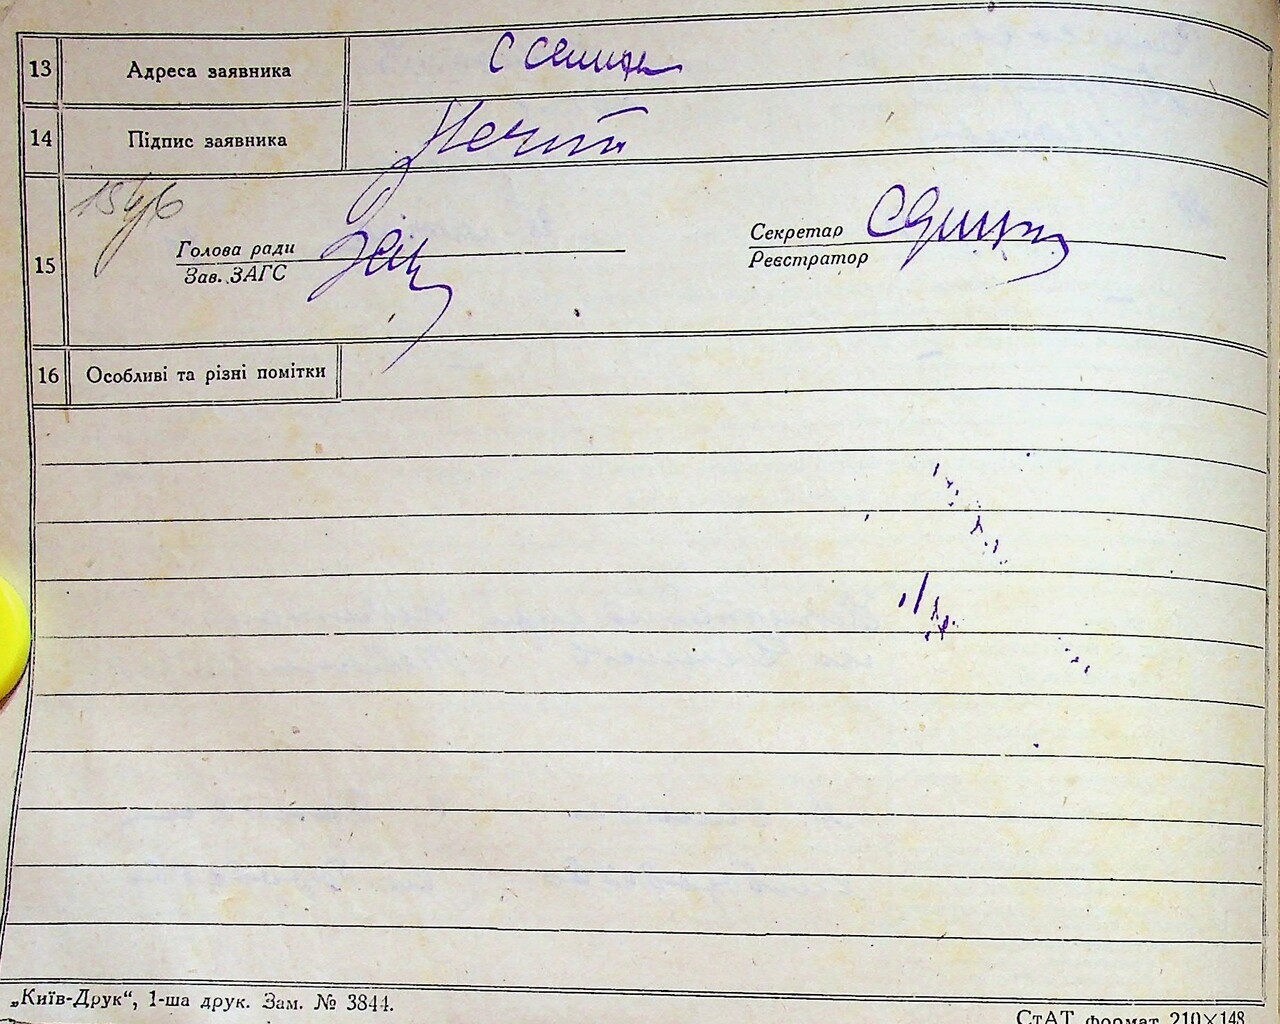 13 Адреса заявника С
14 Підпис заявника
15
Голова ради
Зав. ЗАГС
Секретар
Реєстратор
16 Особливі та різні помітки
„Київ-Друк“, 1-ша друк. Зам. № 3844.
СтАТ формат 210×148